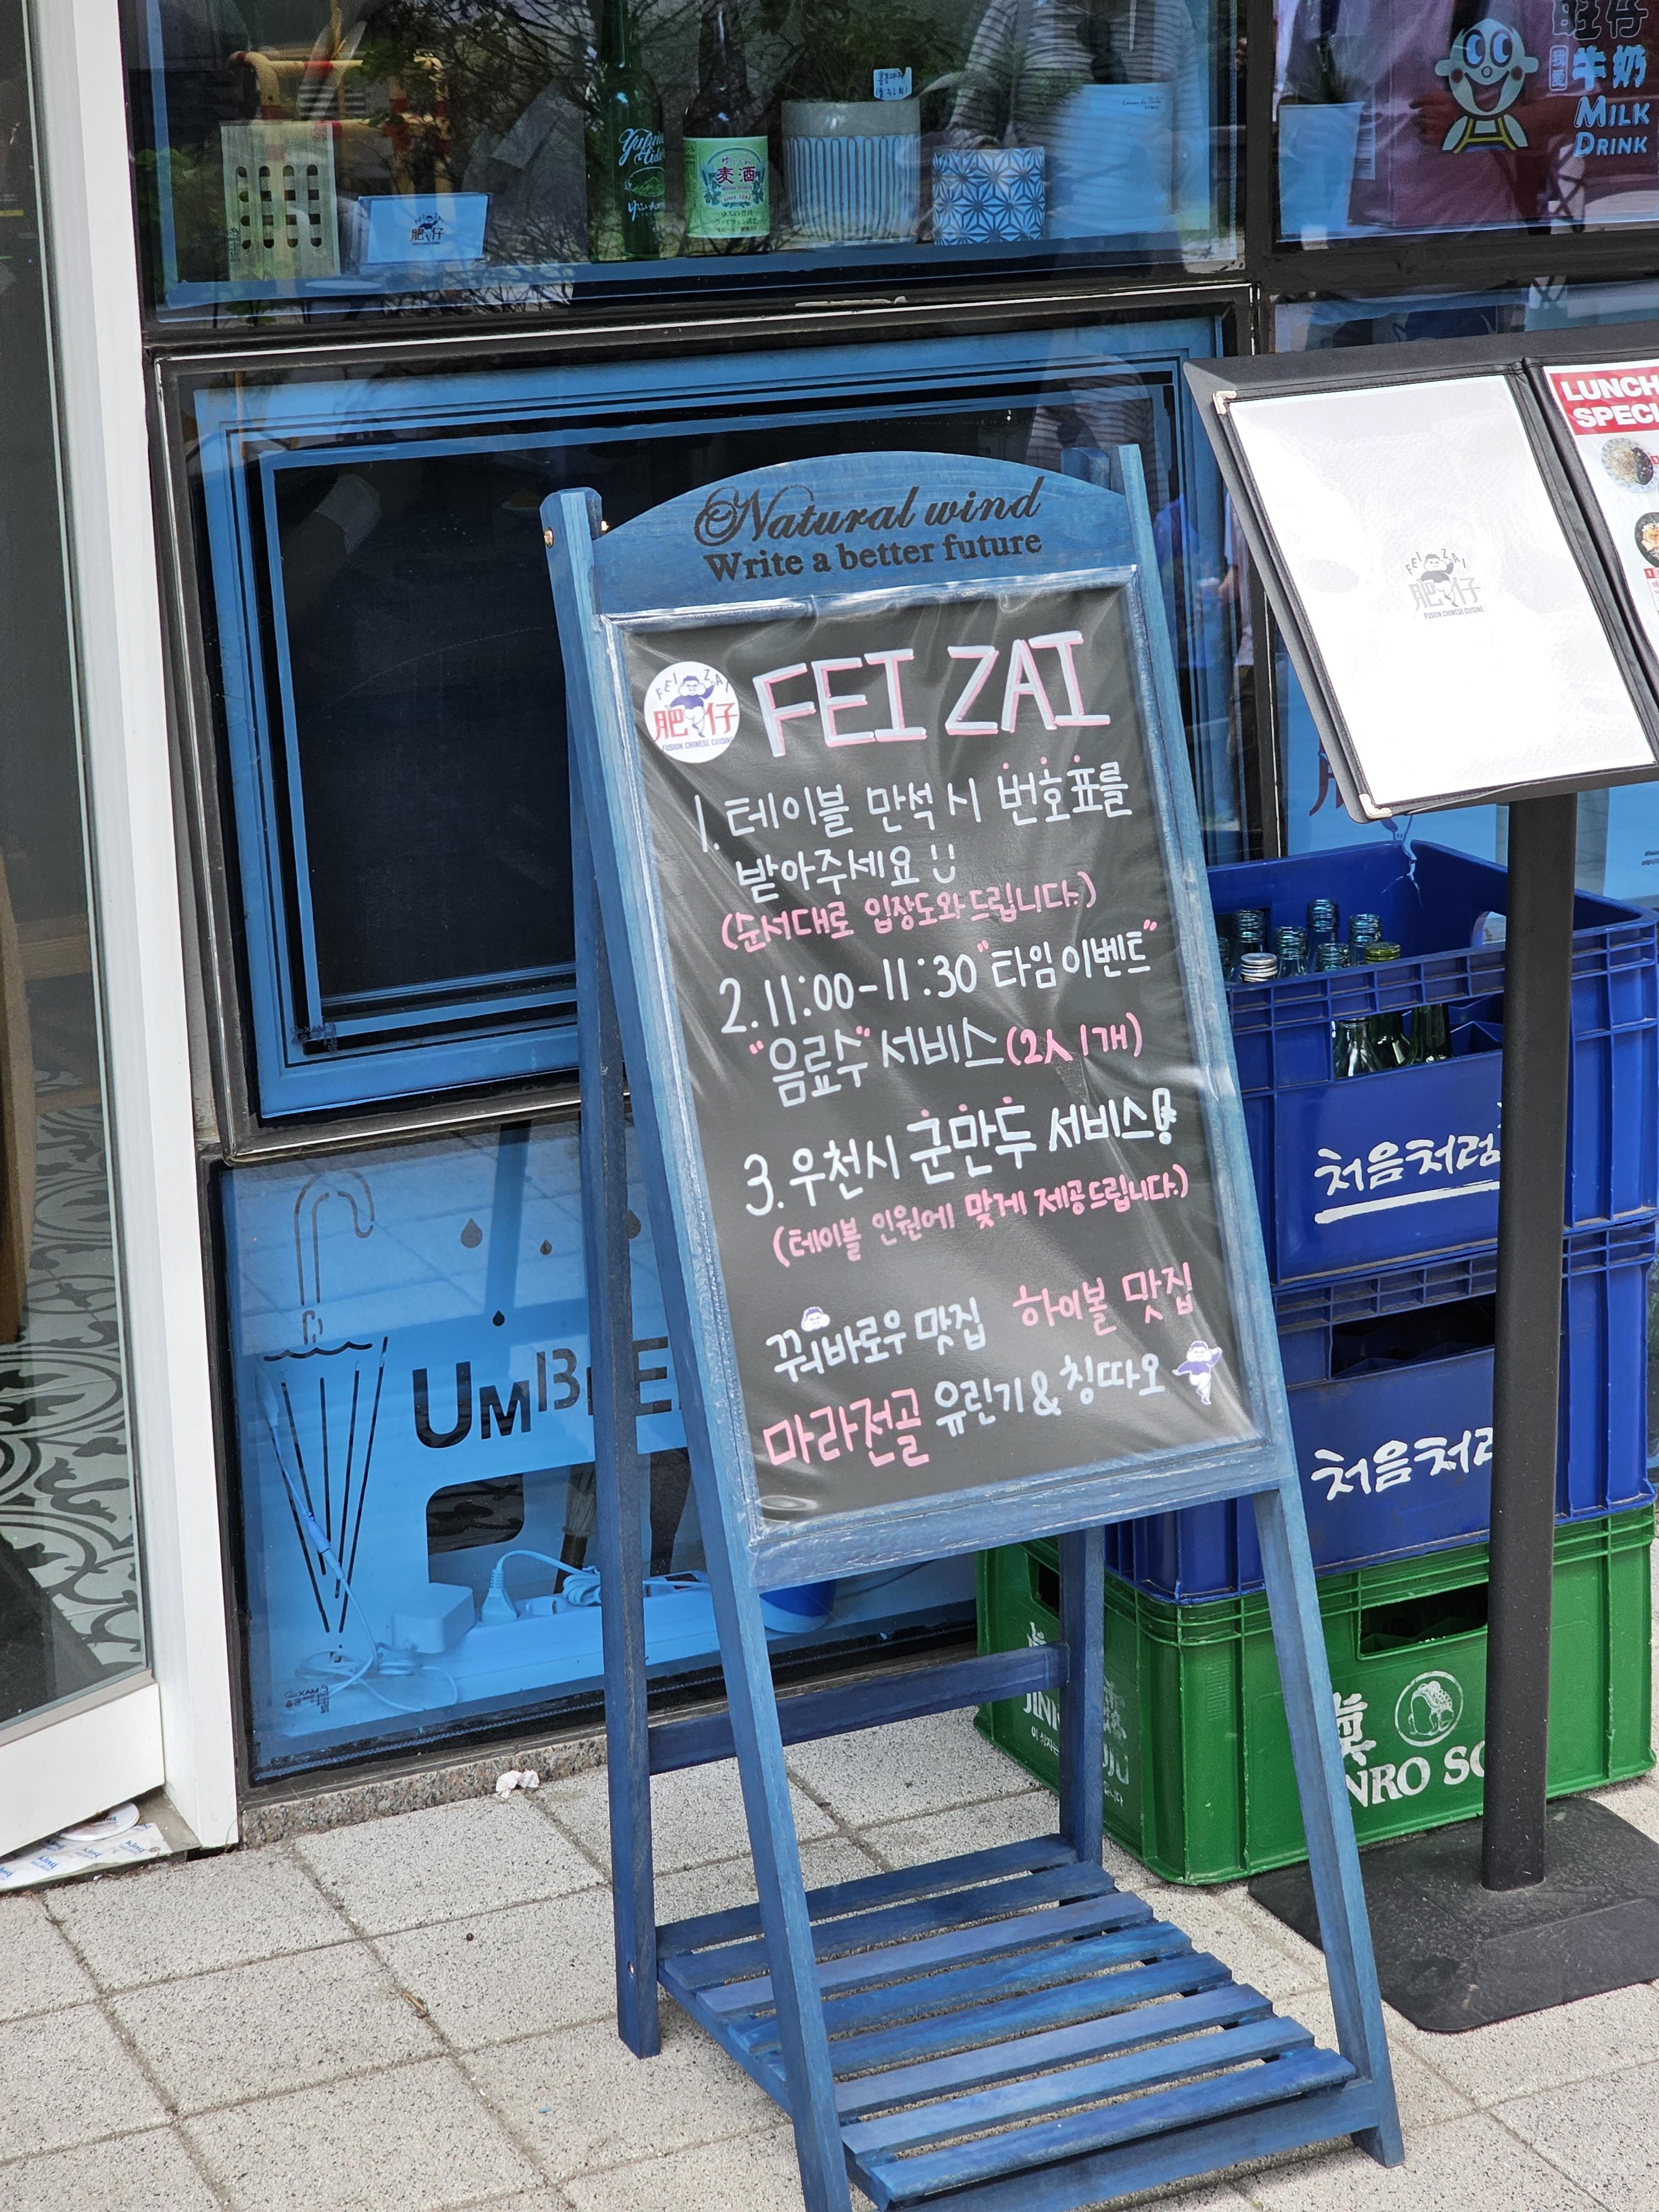 麦酒
肥仔
旺仔
牛奶
MILK
DRINK
Natural wind
Write a better future
FEI ZAI
肥仔
FUSION CHINESE CUISINE
FEI ZAI
1. 테이블 만석 시 번호표를
받아주세요
(순서대로 입장도와드립니다.)
2. 11:00-11:30 "타임이벤트"
"음료수" 서비스 (2人 1개)
3. 우천시 군만두 서비스!
(테이블 인원에 맞게 제공드립니다.)
꿔바로우 맛집 하이볼 맛집
마라전골 유린기 & 칭따오
FEI ZAI
肥仔
FUSION CHINESE CUISINE
LUNCH
SPECI
처음처럼
처음처럼
UMBRE
JINRO SO